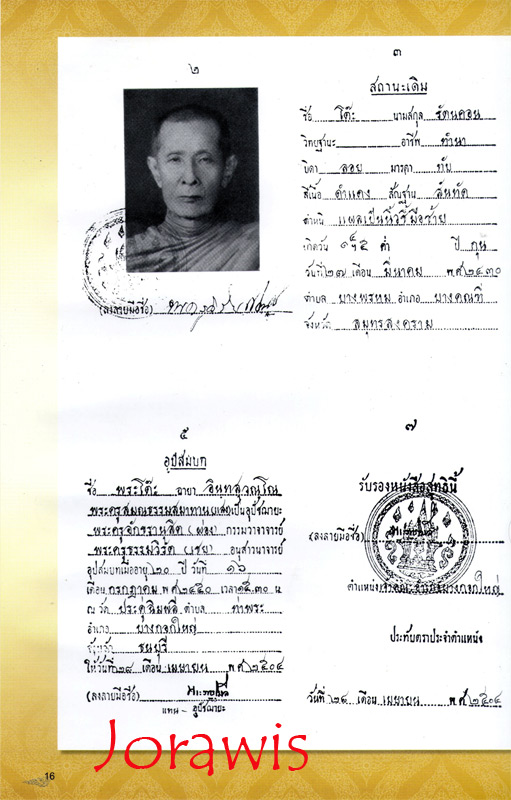 ๒
(ลงลายมือชื่อ)
๓
สถานะเดิม
ชื่อ โต๊ะ นามสกุล รัตนคอน
วิทยฐานะ อาชีพ ทำนา
บิดา ลอย มารดา ทับ
สีเนื้อ ดำแดง สัณฐาน สันทัด
ตำหนิ แผลเป็นนิ้วชี้มือซ้าย
เกิดวัน ค่ำ ปี กุน
วันที่ ๒๗ เดือน มีนาคม พ.ศ. ๒๔๓๐
ตำบล บางพรหม อำเภอ บางคณฑี
จังหวัด สมุทรสงคราม
๕
อุปสมบท
ชื่อ พระโต๊ะ ฉายา อินทสุวณฺโณ
พระครูสมณธรรมสมาทาน (แสง) เป็นอุปัชฌายะ
พระครูอักขรานุสิต (ผ่อง) กรรมวาจาจารย์
พระครูธรรมวิรัต (เชย) อนุสาวนาจารย์
อุปสมบทเมื่ออายุ ๒๐ ปี วันที่ ๑๖
เดือน กรกฎาคม พ.ศ. ๒๔๕๐ เวลา ๑๕.๓๐ น.
ณ วัด ประดู่ฉิมพลี ตำบล ท่าพระ
อำเภอ บางกอกใหญ่
จังหวัด ธนบุรี
ให้วันที่ ๒๘ เดือน เมษายน พ.ศ. ๒๕๐๔
(ลงลายมือชื่อ)
แทน - อุปัชฌายะ
๗
รับรองหนังสือสุทธินี้
(ลงลายมือชื่อ)
ตำแหน่ง
ประทับตราประจำตำแหน่ง
วันที่ ๒๘ เดือน เมษายน พ.ศ. ๒๕๐๔
16
Jorawis